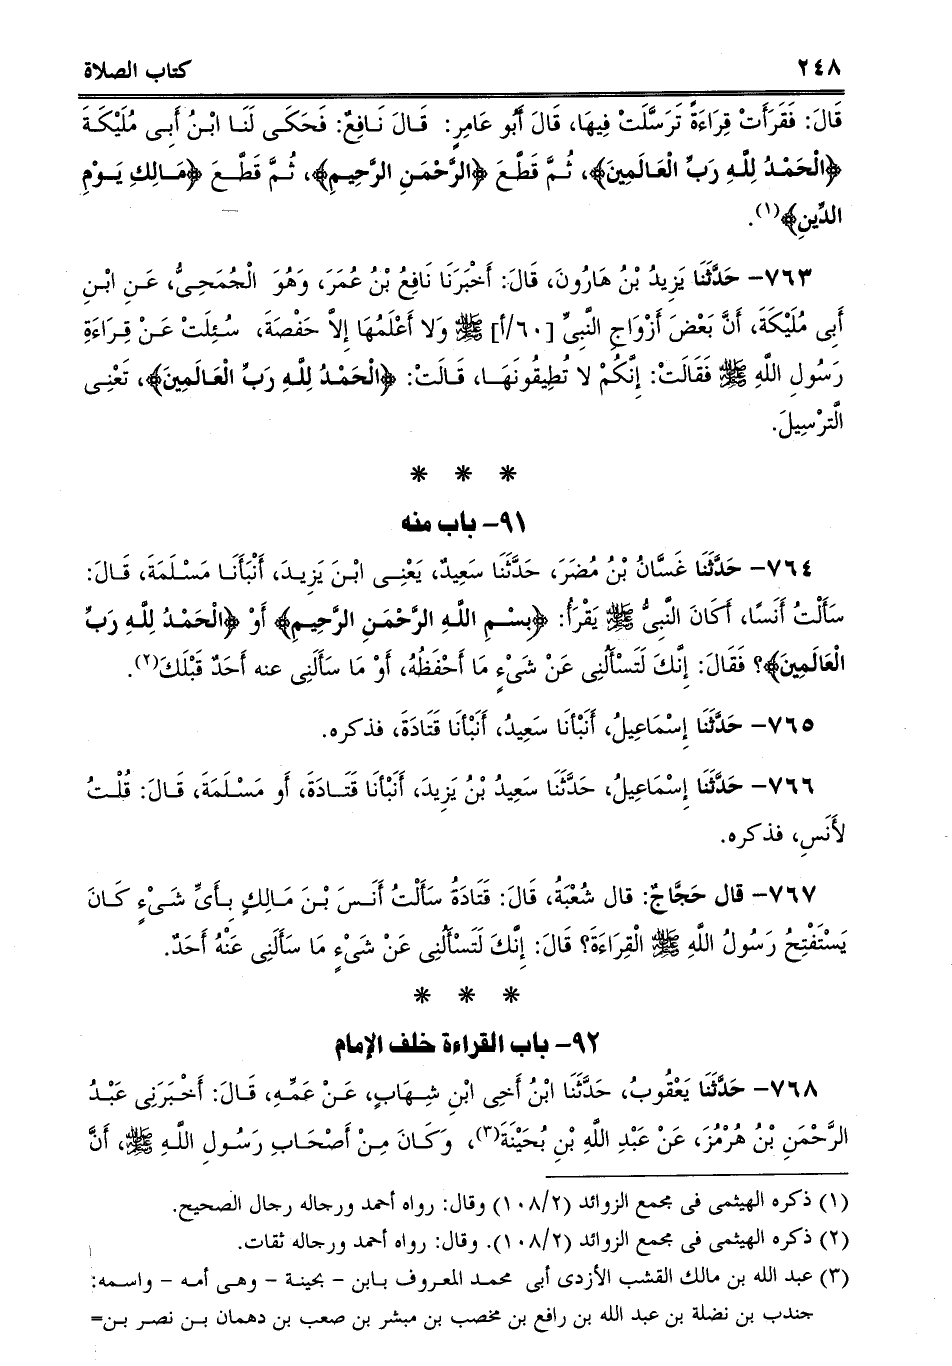 ٢٤٨ كتاب الصلاة
قَالَ: فَقَرَأَتْ قِرَاءَةً تَرَسَّلَتْ فِيهَا، قَالَ أَبُو عَامِرٍ: قَالَ نَافِعٌ: فَحَكَى لَنَا ابْنُ أَبِى مُلَيْكَةَ
﴿الْحَمْدُ لِلَّهِ رَبِّ الْعَالَمِينَ﴾، ثُمَّ قَطَّعَ ﴿الرَّحْمَنِ الرَّحِيمِ﴾، ثُمَّ قَطَّعَ ﴿مَالِكِ يَوْمِ
الدِّينِ﴾(١).
٧٦٣- حَدَّثَنَا يَزِيدُ بْنُ هَارُونَ، قَالَ: أَخْبَرَنَا نَافِعُ بْنُ عُمَرَ، وَهُوَ الْجُمَحِىُّ، عَنِ ابْنِ
أَبِى مُلَيْكَةَ، أَنَّ بَعْضَ أَزْوَاجِ النَّبِىِّ [٦٠/أ] ﷺ وَلا أَعْلَمُهَا إِلاَّ حَفْصَةَ، سُئِلَتْ عَنْ قِرَاءَةِ
رَسُولِ اللَّهِ ﷺ فَقَالَتْ: إِنَّكُمْ لا تُطِيقُونَهَا، قَالَتْ: ﴿الْحَمْدُ لِلَّهِ رَبِّ الْعَالَمِينَ﴾، تَعْنِى
الَّتَرْسِيلَ.
* * *
٩١- باب منه
٧٦٤- حَدَّثَنَا غَسَّانُ بْنُ مُضَرَ، حَدَّثَنَا سَعِيدٌ، يَعْنِى ابْنَ يَزِيدَ، أَنْبَأَنَا مَسْلَمَةَ، قَالَ:
سَأَلْتُ أَنَسًا، أَكَانَ النَّبِىُّ ﷺ يَقْرَأُ: ﴿بِسْمِ اللَّهِ الرَّحْمَنِ الرَّحِيمِ﴾ أَوْ ﴿الْحَمْدُ لِلَّهِ رَبِّ
الْعَالَمِينَ﴾؟ فَقَالَ: إِنَّكَ لَتَسْأَلُنِى عَنْ شَىْءٍ مَا أَحْفَظُهُ، أَوْ مَا سَأَلَنِى عنه أَحَدٌ قَبْلَكَ(٢).
٧٦٥- حَدَّثَنَا إِسْمَاعِيلُ، أَنْبَأَنَا سَعِيدُ، أَنْبَأَنَا قَتَادَةَ، فذكره.
٧٦٦- حَدَّثَنَا إِسْمَاعِيلُ، حَدَّثَنَا سَعِيدُ بْنُ يَزِيدَ، أَنْبَأَنَا قَتَادَةَ، أَو مَسْلَمَةَ، قَالَ: قُلْتُ
لأَنَسٍ، فذكره.
٧٦٧- قال حَجَّاجٌ: قال شُعْبَةُ، قَالَ: قَتَادَةُ سَأَلْتُ أَنَسَ بْنَ مَالِكٍ بِأَىِّ شَىْءٍ كَانَ
يَسْتَفْتِحُ رَسُولُ اللَّهِ ﷺ الْقِرَاءَةَ؟ قَالَ: إِنَّكَ لَتَسْأَلُنِى عَنْ شَىْءٍ مَا سَأَلَنِى عَنْهُ أَحَدٌ.
* * *
٩٢- باب القراءة خلف الإمام
٧٦٨- حَدَّثَنَا يَعْقُوبُ، حَدَّثَنَا ابْنُ أَخِى ابْنِ شِهَابٍ، عَنْ عَمِّهِ، قَالَ: أَخْبَرَنِى عَبْدُ
الرَّحْمَنِ بْنُ هُرْمُزَ، عَنْ عَبْدِ اللَّهِ بْنِ بُحَيْنَةَ(٣)، وَكَانَ مِنْ أَصْحَابِ رَسُولِ اللَّهِ ﷺ، أَنَّ
(١) ذكره الهيثمى فى مجمع الزوائد (١٠٨/٢) وقال: رواه أحمد ورجاله رجال الصحيح.
(٢) ذكره الهيثمى فى مجمع الزوائد (١٠٨/٢). وقال: رواه أحمد ورجاله ثقات.
(٣) عبد الله بن مالك القشب الأزدى أبى محمد المعروف بابن - بحينة - وهى أمه - واسمه:
جندب بن نضلة بن عبد الله بن رافع بن مخصب بن مبشر بن صعب بن دهمان بن نصر بن=